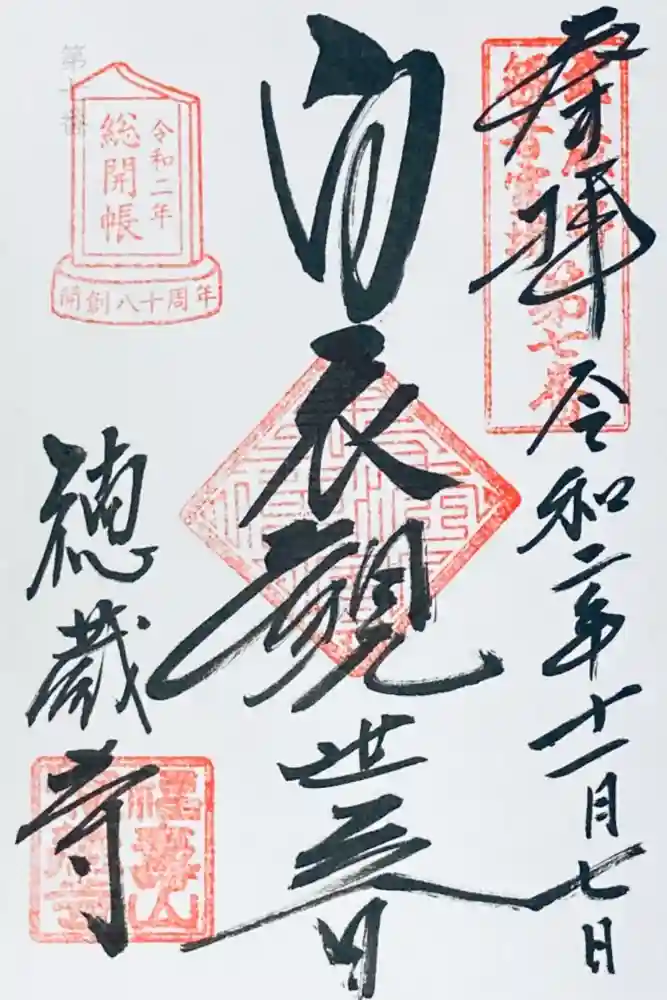 奉拝
令和二年十一月七日
白衣観世音
徳蔵寺
令和二年
総開帳
開創八十周年
第七番
福寿山